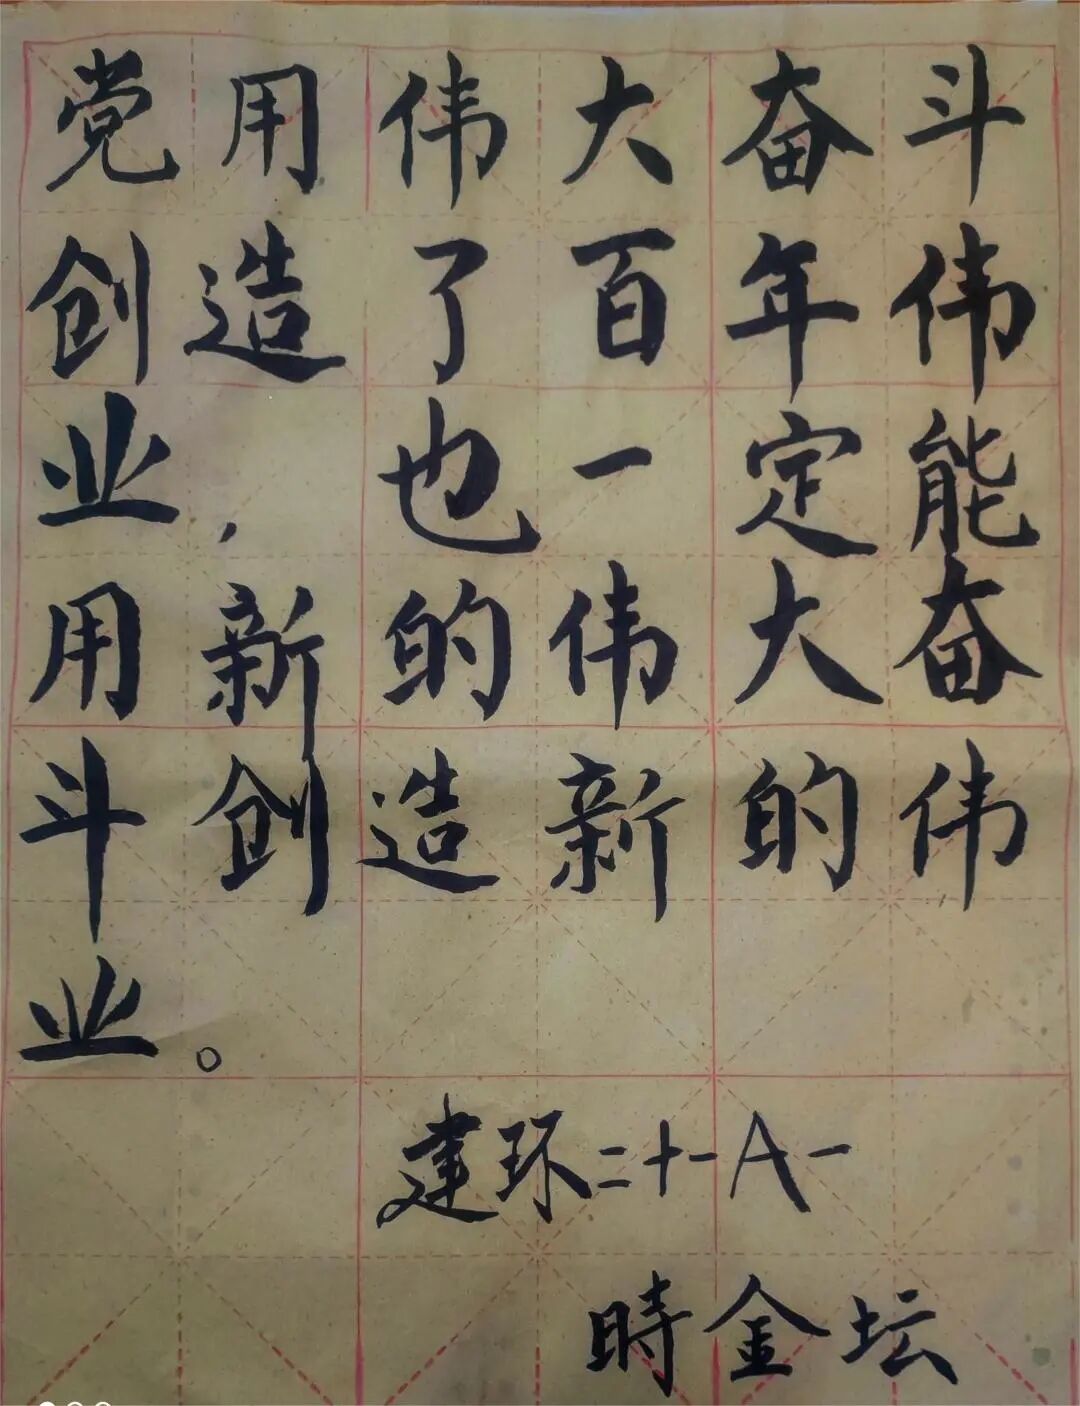 党用伟大奋斗
创造了百年伟
业，也一定能
用新的伟大奋
斗创造新的伟
业。
建环二十一A一
時金坛